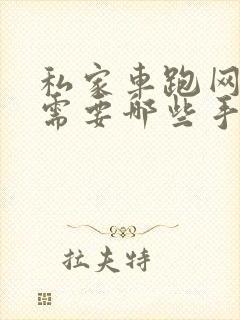 私家车跑网
需要哪些手
拉夫特